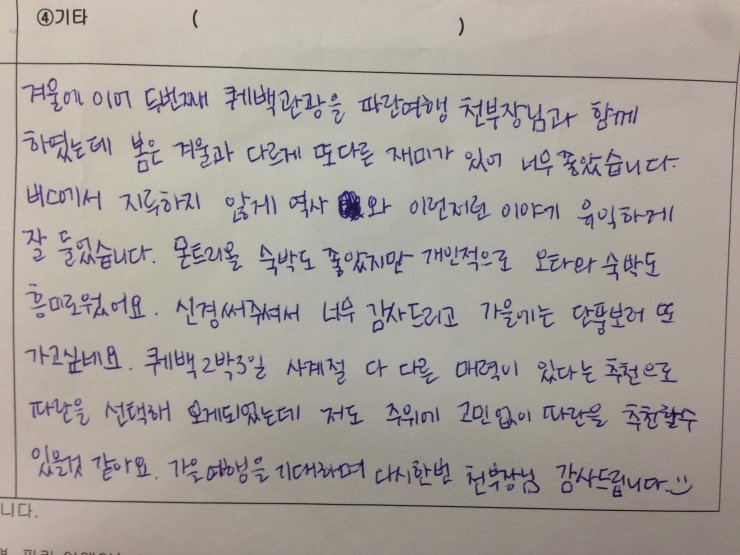 ④기타 ( )
겨울에 이어 두번째 퀘백관광을 파란여행 천부장님과 함께
하였는데 봄은 겨울과 다르게 또다른 재미가 있어 너무 좋았습니다.
버스에서 지루하지 않게 역사 와 이런저런 이야기 유익하게
잘 들었습니다. 몬트리올 숙박도 좋았지만 개인적으로 오타와 숙박도
흥미로웠어요. 신경써주셔서 너무 감사드리고 가을에는 단풍보러 또
가고싶네요. 퀘백 2박3일 사계절 다 다른 매력이 있다는 추천으로
파란을 선택해 오게되었는데 저도 주위에 고민없이 파란을 추천할수
있을것 같아요. 가을여행을 기대하며 다시한번 천부장님 감사드립니다
니다.